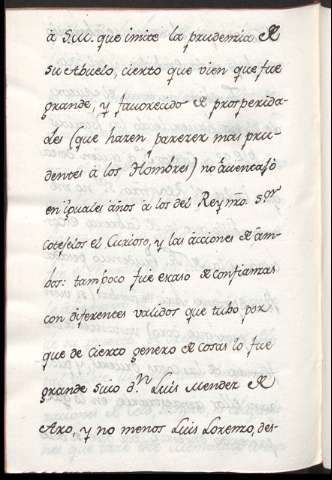 à S.M. que imite la prudencia de
su Abuelo, cierto que vien que fue
grande, y favorecido de prosperida-
des (que hazen parezer mas pru-
dentes à los Hombres) no
en iguales años à los del Rey nro. Sor.
cotejelos el Curioso, y las acciones de am-
bos: tampoco fue escaso de confianzas
con diferentes validos que tubo por
que de cierto genero de cosas lo fue
grande suio dn. Luis Mendez de
Aro, y no menos Luis Lorenzo, des-